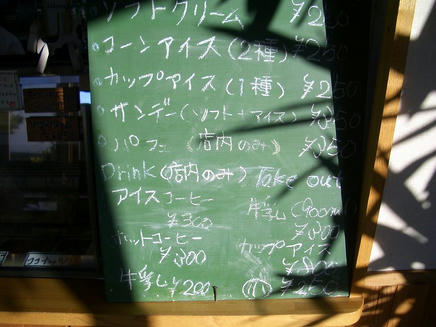 ソフトクリーム ¥250
コーンアイス(2種) ¥250
カップアイス(1種) ¥250
サンデー(ソフト+アイス) ¥350
パフェ(店内のみ) ¥350
Drink(店内のみ) Take out
アイスコーヒー
¥300
牛乳(900ml)
ホットコーヒー
¥300
カップアイス
牛乳 ¥200